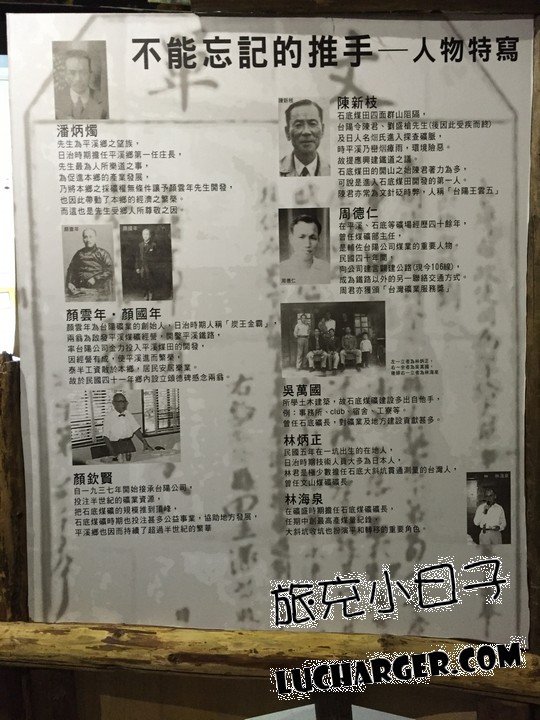 不能忘記的推手—人物特寫
潘炳燭
先生為平溪鄉之望族，
日治時期擔任平溪鄉第一任庄長，
先生最為人所樂道之事，
為促進本鄉的產業發展，
乃將本鄉之採礦權無條件讓予顏雲年先生開發，
也因此帶動了本鄉的經濟之繁榮。
而這也是先生受鄉人所尊敬之因。
顏雲年
顏國年
顏雲年．顏國年
顏雲年為台陽礦業的創始人，日治時期人稱「炭王金霸」，
兩翁為啟發平溪煤礦經營，開鑿平溪鐵路，
率台陽公司全力投入平溪煤田的開發，
因經營有成，使平溪進而繁榮，
泰半工資散於本鄉，居民安居樂業，
故於民國四十一年鄉內設立頌德碑感念兩翁。
顏欽賢
自一九三七年開始接承台陽公司，
投注半世紀的礦業資源，
把石底煤礦的規模推到頂峰，
石底煤礦時期也投注甚多公益事業，協助地方發展，
平溪鄉也因而持續了超過半世紀的繁華
陳新枝
陳新枝
石底煤田四面群山阻隔，
台陽令陳君、劉盛福先生(後因此受疾而終)
及日人名畑氏進入探查礦脈，
時平溪乃巒烟瘴雨，環境險惡。
故提應興建鐵道之議。
石底煤田的開山之始陳君著力為多，
可說是進入石底煤田開發的第一人。
陳君亦常為文針砭時弊，人稱「台陽王雲五」
周德仁
周德仁
在平溪、石底等礦場經歷四十餘年，
曾任煤礦部主任，
是輔佐台陽公司煤業的重要人物。
民國四十年間，
向公司建言闢建公路(現今106線)，
成為鐵路以外的另一聯絡交通方式。
周君亦獲頒「台灣礦業服務獎」
左一立者為林炳正，
右一坐者為吳萬國，
吳萬國
所學土木建築，故石底煤礦建設多出自他手，
例：事務所、club、宿舍、工寮等。
曾任石底礦長，對礦業及地方建設貢獻甚多。
林炳正
民國五年在一坑出生的在地人，
日治時期技術人員大多為日本人，
林君是極少數擔任石底大斜坑貫通測量的台灣人，
曾任文山煤礦礦長。
林海泉
林海泉
在礦盛時期擔任石底煤礦礦長，
任期中創最高產煤量紀錄，
大斜坑收坑也扮演平和轉移的重要角色。
旅充小日子
LUCHARGER.COM